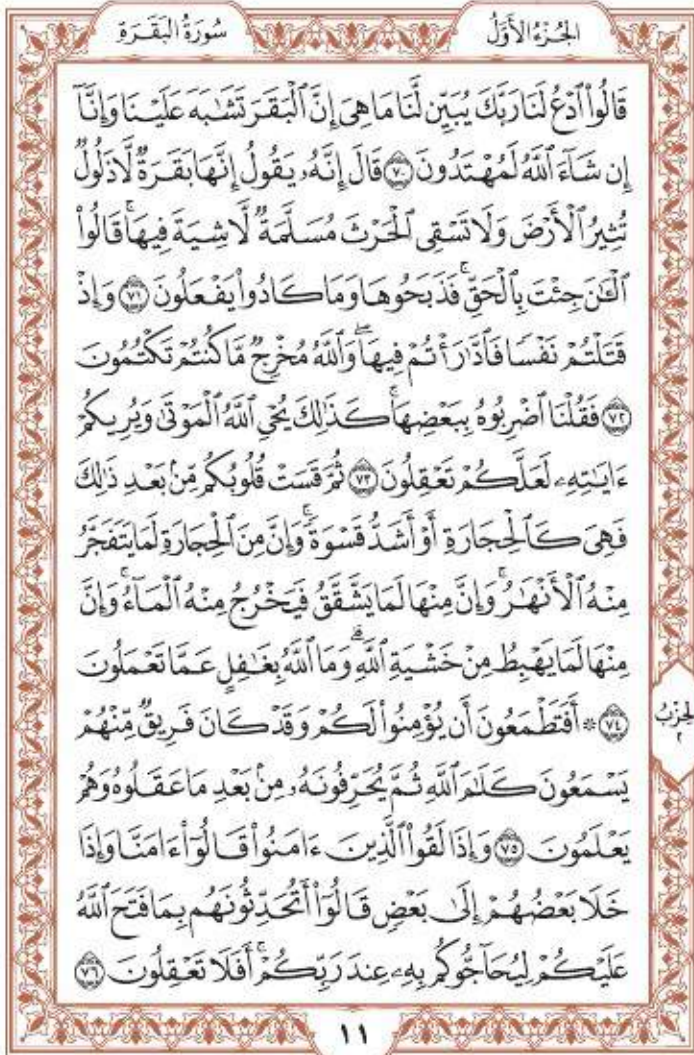 سُورَةُ البَقَرَةِ
الجُزْءُ الأَوَّلُ
قَالُوا۟ ٱدْعُ لَنَا رَبَّكَ يُبَيِّن لَّنَا مَا هِىَ إِنَّ ٱلْبَقَرَ تَشَـٰبَهَ عَلَيْنَا وَإِنَّآ
إِن شَآءَ ٱللَّهُ لَمُهْتَدُونَ ٧٠ قَالَ إِنَّهُۥ يَقُولُ إِنَّهَا بَقَرَةٌ لَّا ذَلُولٌ
تُثِيرُ ٱلْأَرْضَ وَلَا تَسْقِى ٱلْحَرْثَ مُسَلَّمَةٌ لَّا شِيَةَ فِيهَاۚ قَالُوا۟
ٱلْـَٔـٰنَ جِئْتَ بِٱلْحَقِّۚ فَذَبَحُوهَا وَمَا كَادُوا۟ يَفْعَلُونَ ٧١ وَإِذْ
قَتَلْتُمْ نَفْسًا فَٱدَّٰرَْٰٔتُمْ فِيهَاۖ وَٱللَّهُ مُخْرِجٌ مَّا كُنتُمْ تَكْتُمُونَ
٧٢ فَقُلْنَا ٱضْرِبُوهُ بِبَعْضِهَاۚ كَذَٰلِكَ يُحْىِ ٱللَّهُ ٱلْمَوْتَىٰ وَيُرِيكُمْ
ءَايَـٰتِهِۦ لَعَلَّكُمْ تَعْقِلُونَ ٧٣ ثُمَّ قَسَتْ قُلُوبُكُم مِّنۢ بَعْدِ ذَٰلِكَ
فَهِىَ كَٱلْحِجَارَةِ أَوْ أَشَدُّ قَسْوَةًۚ وَإِنَّ مِنَ ٱلْحِجَارَةِ لَمَا يَتَفَجَّرُ
مِنْهُ ٱلْأَنْهَـٰرُۚ وَإِنَّ مِنْهَا لَمَا يَشَّقَّقُ فَيَخْرُجُ مِنْهُ ٱلْمَآءُۚ وَإِنَّ
مِنْهَا لَمَا يَهْبِطُ مِنْ خَشْيَةِ ٱللَّهِۗ وَمَا ٱللَّهُ بِغَـٰفِلٍ عَمَّا تَعْمَلُونَ
٧٤ ۞ أَفَتَطْمَعُونَ أَن يُؤْمِنُوا۟ لَكُمْ وَقَدْ كَانَ فَرِيقٌ مِّنْهُمْ
يَسْمَعُونَ كَلَـٰمَ ٱللَّهِ ثُمَّ يُحَرِّفُونَهُۥ مِنۢ بَعْدِ مَا عَقَلُوهُ وَهُمْ
يَعْلَمُونَ ٧٥ وَإِذَا لَقُوا۟ ٱلَّذِينَ ءَامَنُوا۟ قَالُوٓا۟ ءَامَنَّا وَإِذَا
خَلَا بَعْضُهُمْ إِلَىٰ بَعْضٍ قَالُوٓا۟ أَتُحَدِّثُونَهُم بِمَا فَتَحَ ٱللَّهُ
عَلَيْكُمْ لِيُحَآجُّوكُم بِهِۦ عِندَ رَبِّكُمْۚ أَفَلَا تَعْقِلُونَ ٧٦
الحِزْبُ
٢
١١